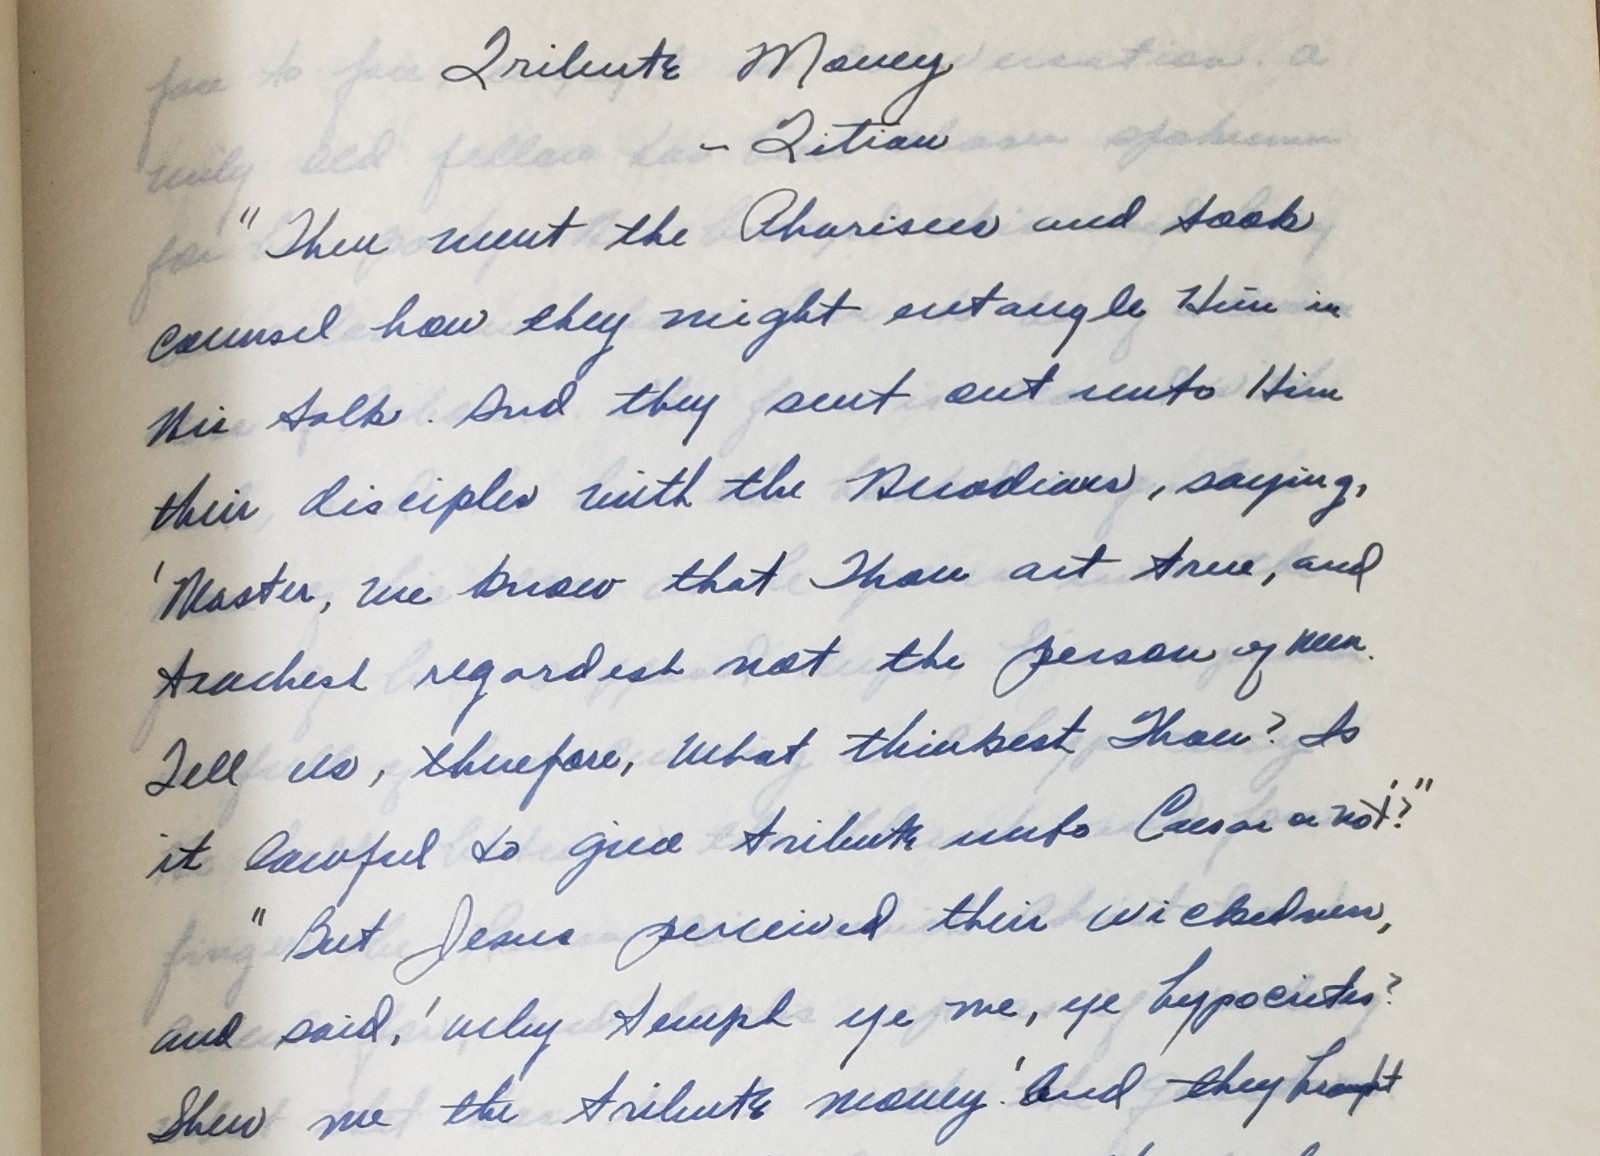 Tribute Money
- Titian
"Then went the Pharisees and took
counsel how they might entangle Him in
His talk. And they sent out unto Him
their disciples with the Herodians, saying,
'Master, we know that Thou art true, and
teachest regardest not the person of men.
Tell us, therefore, What thinkest Thou? Is
it lawful to give tribute unto Caesar or not?'"
"But Jesus perceived their wickedness,
and said, 'Why tempt ye me, ye hypocrites?
Shew me the tribute money.' And they brought